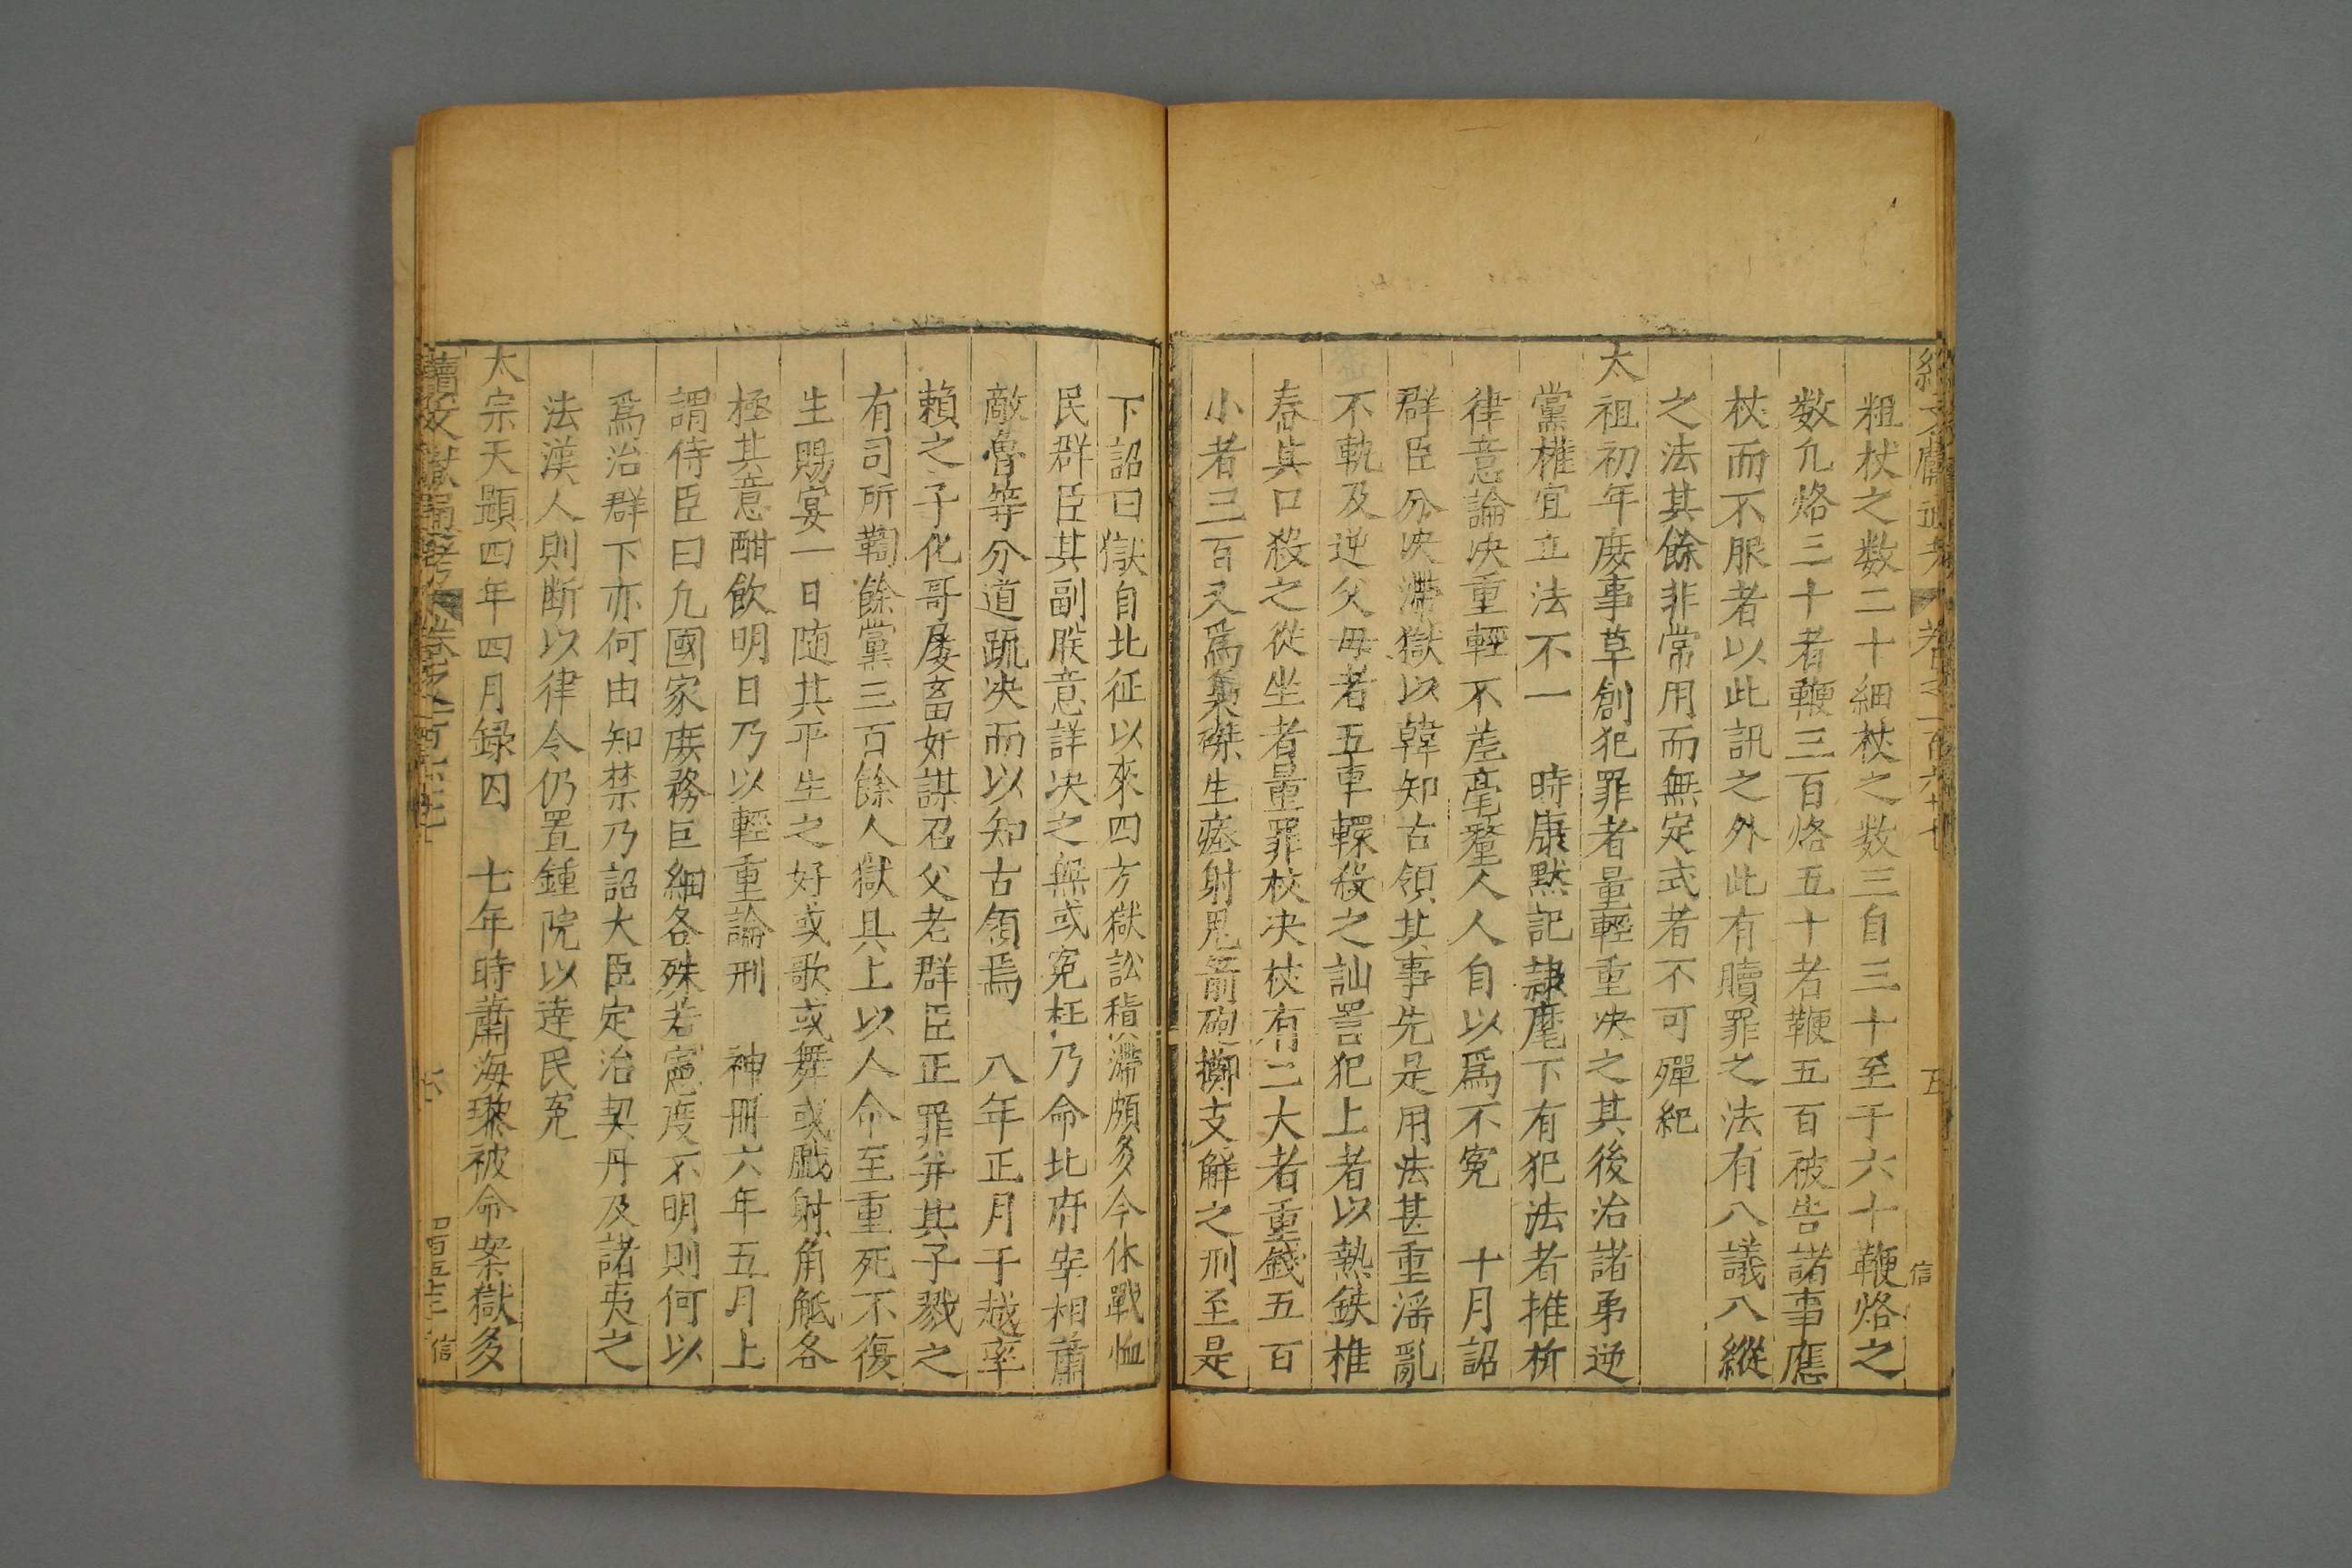 續文獻通考 卷之一百六十七 五 信
粗杖之数二十細杖之数三自三十至于六十鞭烙之
数凢烙三十者鞭三百烙五十者鞭五百被告諸事應
杖而不服者以此訊之外此有贖罪之法有八議八縱
之法其餘非常用而無定式者不可殫紀
太祖初年庻事草創犯罪者量輕重决之其後治諸弟逆
黨權宜立法不一 時康黙記隷麾下有犯法者推析
律意論决重輕不差毫釐人人自以爲不寃 十月詔
群臣分决滯獄以韓知古領其事先是用法甚重滛亂
不軌及逆父母者五車轘殺之訕詈犯上者以熱鉄椎
舂其口殺之從坐者量罪杖决杖有二大者重錢五百
小者三百又爲梟磔生瘞射鬼箭砲擲支解之刑至是
下詔曰獄自北征以來四方獄訟積滯頗多今休戰恤
民群臣其副朕意詳决之無或寃枉乃命北府宰相蕭
敵魯等分道䟽决而以知古領焉 八年正月于越率
賴之子化哥屢畜奸謀召父老群臣正罪并其子戮之
有司所鞫餘黨三百餘人獄具上以人命至重死不復
生賜宴一日随其平生之好或歌或舞或戯射角觝各
極其意酣飲明日乃以輕重論刑 神冊六年五月上
謂侍臣曰凢國家庻務巨細各殊若憲度不明則何以
爲治群下亦何由知禁乃詔大臣定治契丹及諸夷之
法漢人則断以律令仍置鍾院以達民寃
太宗天顯四年四月録囚 七年時蕭海璃被命案獄多
續文獻通考 卷之一百六十七 六 信